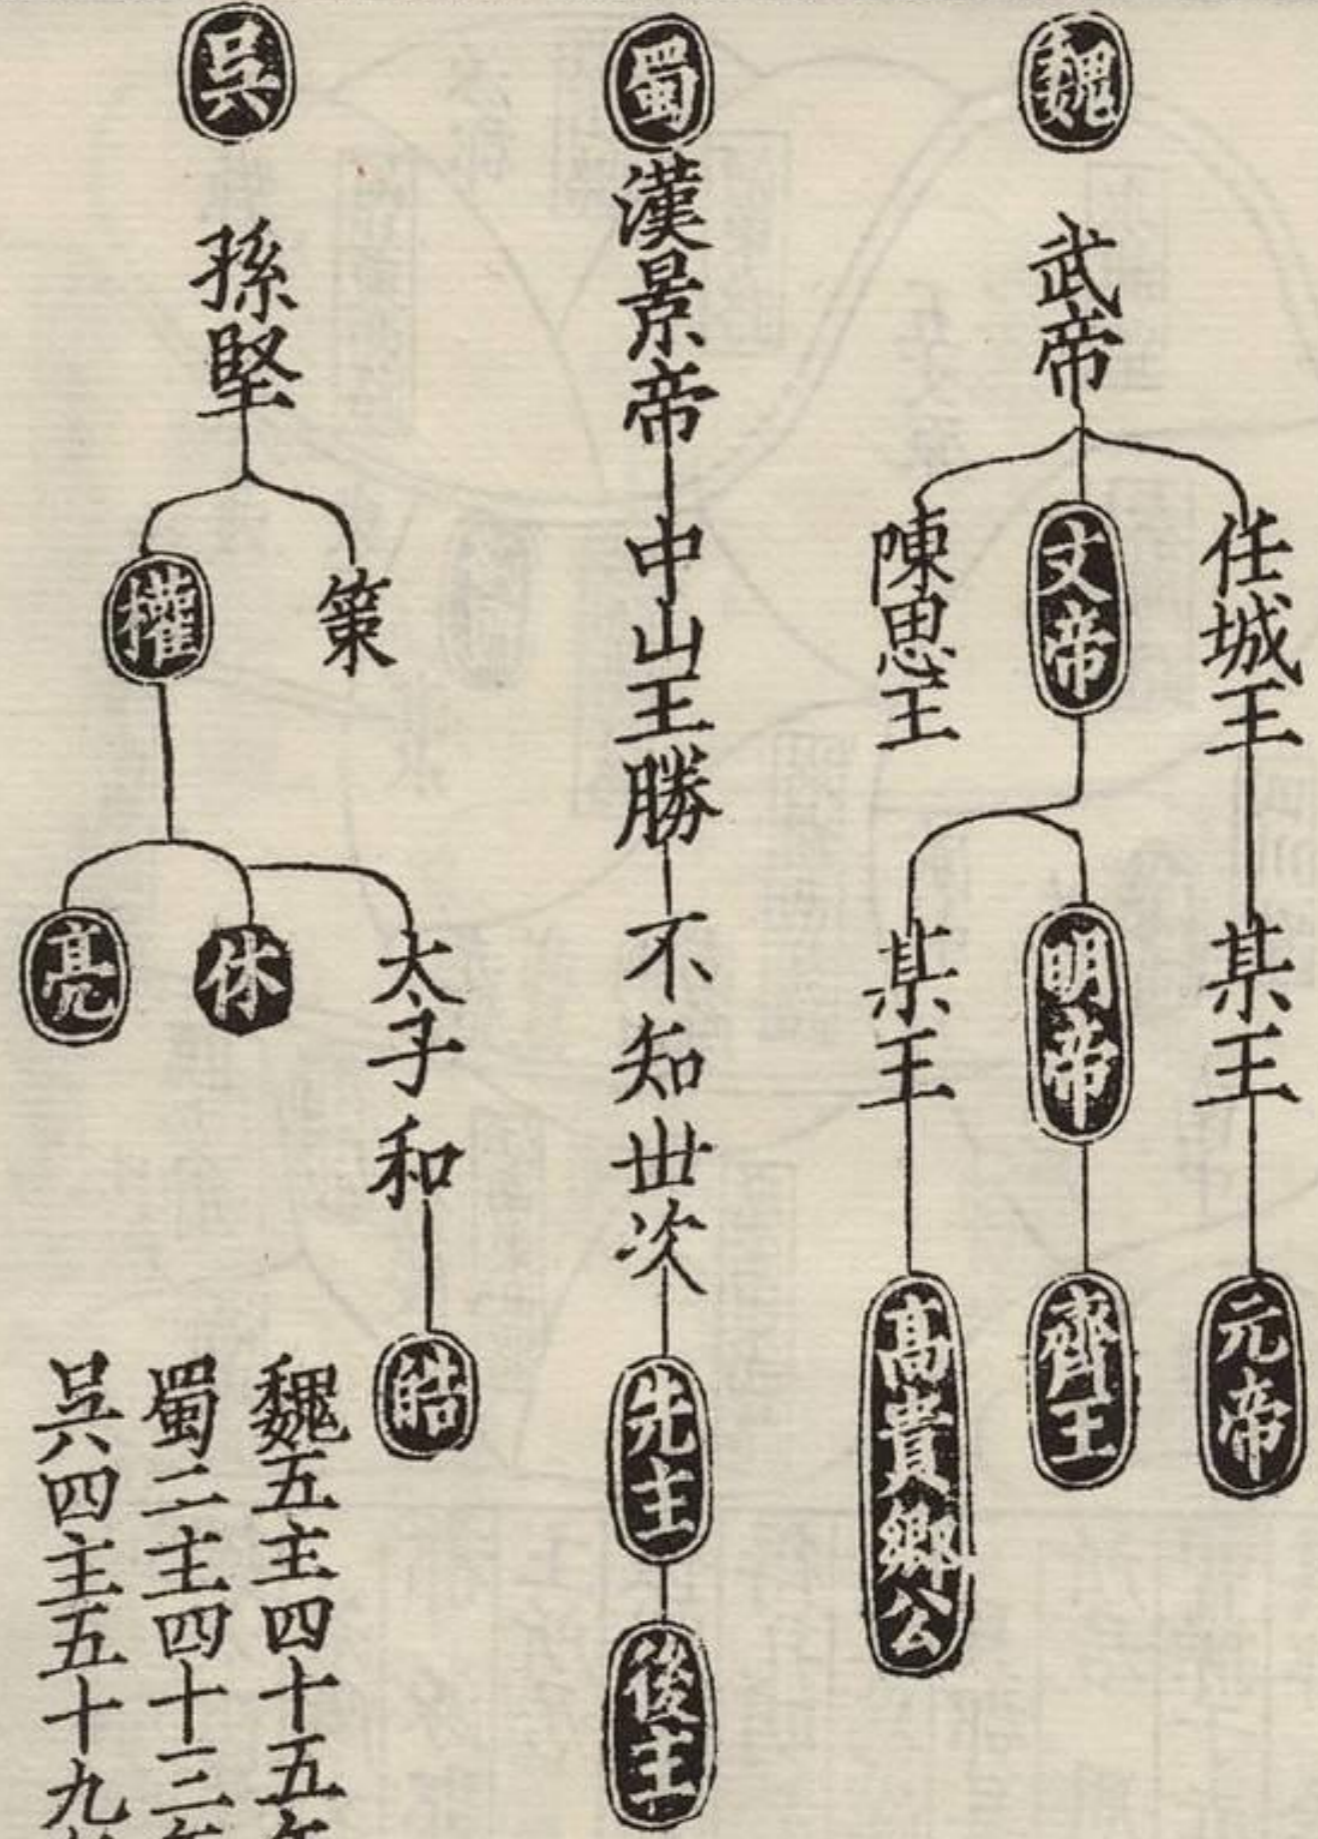 魏
武帝
任城王
某王
元帝
文帝
明帝
齊王
陳思王
某王
高貴鄉公
蜀
漢景帝
中山王勝
不知世次
先主
後主
吳
孫堅
策
權
太子和
皓
休
亮
魏五主四十五年
蜀二主四十三年
吳四主五十九